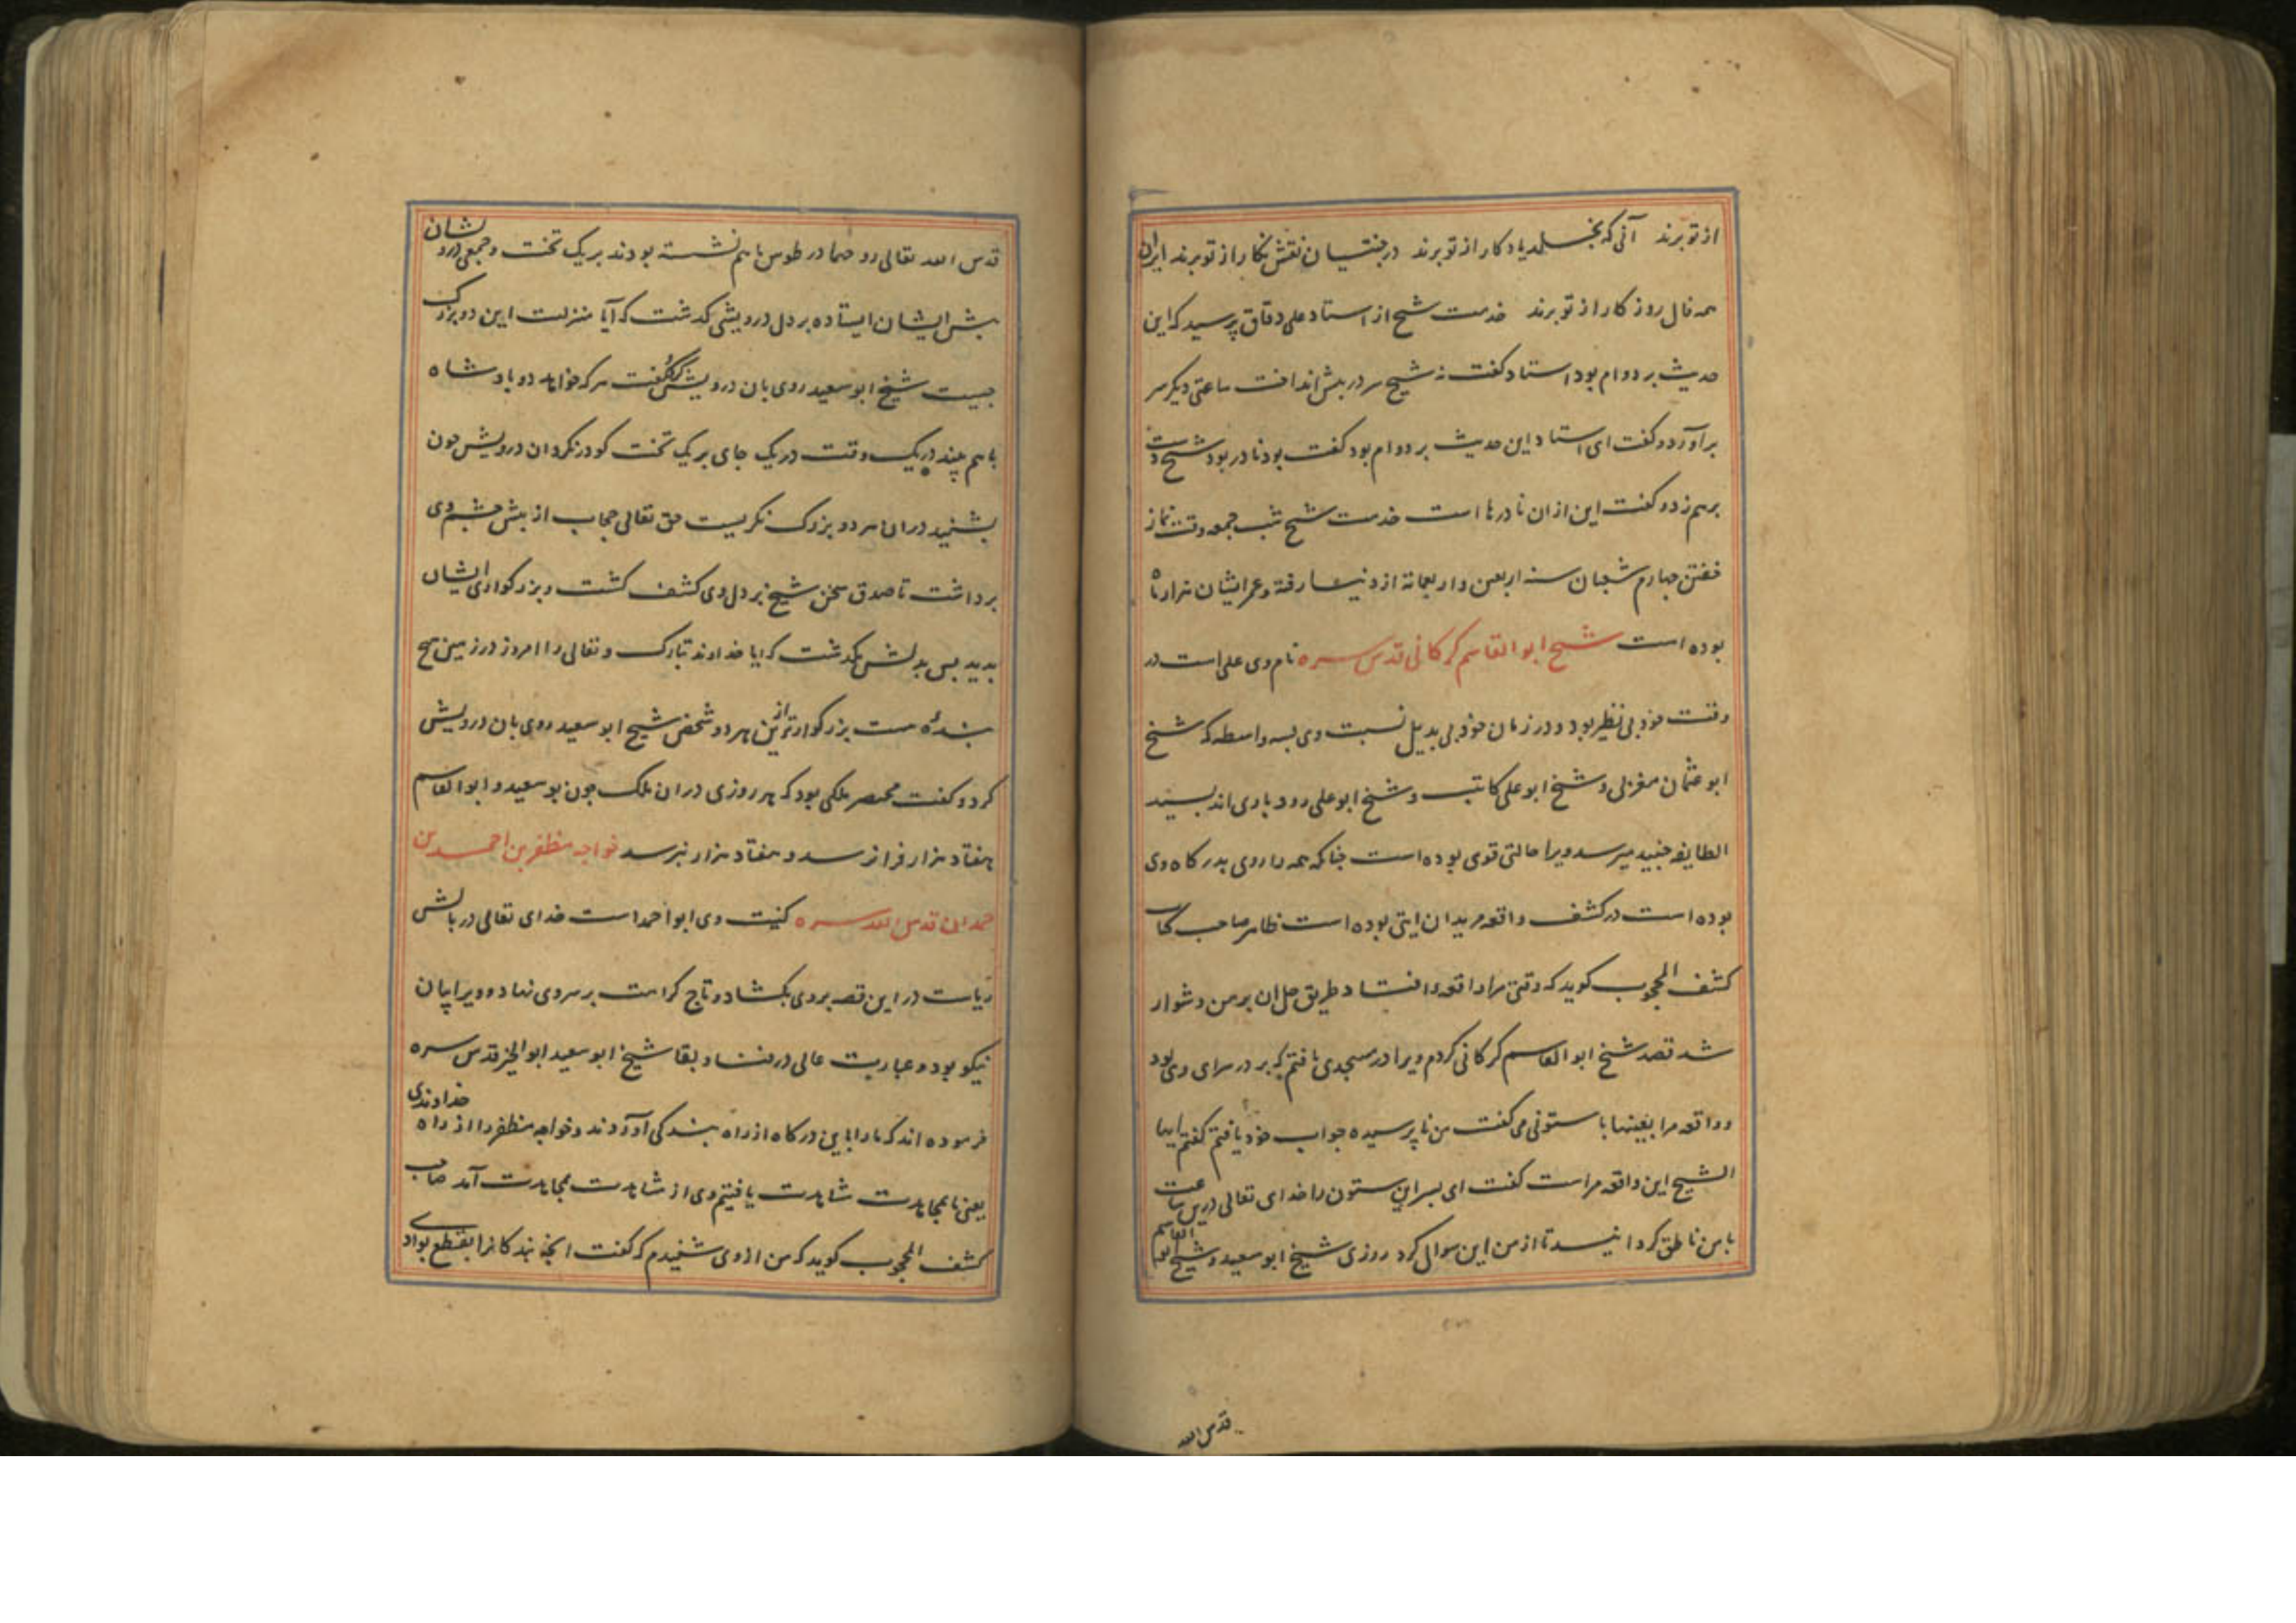 از تو برند آنی که بخلد یادکار از تو برند در جنتیان نقش نکار از تو برند ایران
همه فال روزکار از تو برند خدمت شیخ از استاد علی دقاق پرسید که این
حدیث بر دوام بود استاد کفت نه شیخ سر در پیش انداخت ساعتی دیکر سر
برآورد و کفت ای استاد این حدیث بر دوام بود کفت بود نادر بود شیخ دست
برهم زد و کفت این از ان نادرها است خدمت شیخ شب جمعه وقت نماز
خفتن چهارم شعبان سنه اربعین و اربعمائة از دنیا رفته و عمر ایشان هزار ماه
بوده است شیخ ابوالقاسم کرکانی قدس سره نام وی علی است در
وقت خود بی نظیر بود و در زمان خود بی بدیل نسبت وی بسه واسطه که شیخ
ابو عثمان مغربی و شیخ ابو علی کاتب و شیخ ابو علی رودباری اند بسید
الطایفه جنید میرسد ویرا حالتی قوی بوده است چنانکه همه را روی بدرکاه وی
بوده است در کشف واقعه مریدان ایتی بوده است ظاهر صاحب کتاب
کشف المحجوب کوید که وقتی مرا واقعه افتاد طریق حل ان بر من دشوار
شد قصد شیخ ابوالقاسم کرکانی کردم ویرا در مسجدی یافتم که بر در سرای وی بود
و واقعه مرا بعینها با ستونی می کفت من ناپرسیده جواب خود یافتم کفتم ایها
الشیخ این واقعه مراست کفت ای پسر این ستون را خدای تعالی درین ساعت
با من ناطق کردانید تا از من این سوال کرد روزی شیخ ابو سعید و شیخ ابو القاسم
قدس الله
قدس الله تعالی روحهما در طوس باهم نشسته بودند بر یک تخت و جمعی درویشان
پیش ایشان ایستاده بر دل درویشی کدشت که آیا منزلت این دو بزرک
چیست شیخ ابو سعید روی بان درویش کرد کفت هر که خواهد دو پادشاه
باهم بیند در یک وقت در یک جای بر یک تخت کو در نکر ان درویش چون
بشنید در ان هر دو بزرک نکریست حق تعالی حجاب از پیش چشم وی
برداشت تا صدق سخن شیخ بر دل وی کشف کشت و بزرکواری ایشان
بدید پس بدلش بکدشت که ایا خداوند تبارک و تعالی را امروز در زمین هیچ
بندهٔ هست بزرکوارتر از این هر دو شخص شیخ ابو سعید روی بان درویش
کرد و کفت مختصر ملکی بود که هر روزی در ان ملک چون بو سعید و ابوالقاسم
هفتاد هزار فراز رسد و هفتاد هزار نبرسد خواجه مظفر بن احمد بن
حمدان قدس الله سره کنیت وی ابو احمد است خدای تعالی در بالش
ریاست در این قصه بر وی بکشاد و تاج کرامت بر سر وی نهاد و ویرا بیان
نیکو بود و عبارت عالی در فنا و بقا شیخ ابو سعید ابوالخیر قدس سره
فرموده اند که ما را باین درکاه از راه بندکی آوردند و خواجه مظفر را از راه خداوندی
یعنی ما بمجاهدت مشاهدت یافتیم وی از مشاهدت بمجاهدت آمد صاحب
کشف المحجوب کوید که من از وی شنیدم که کفت انچه بندکانرا بقطع بوادی